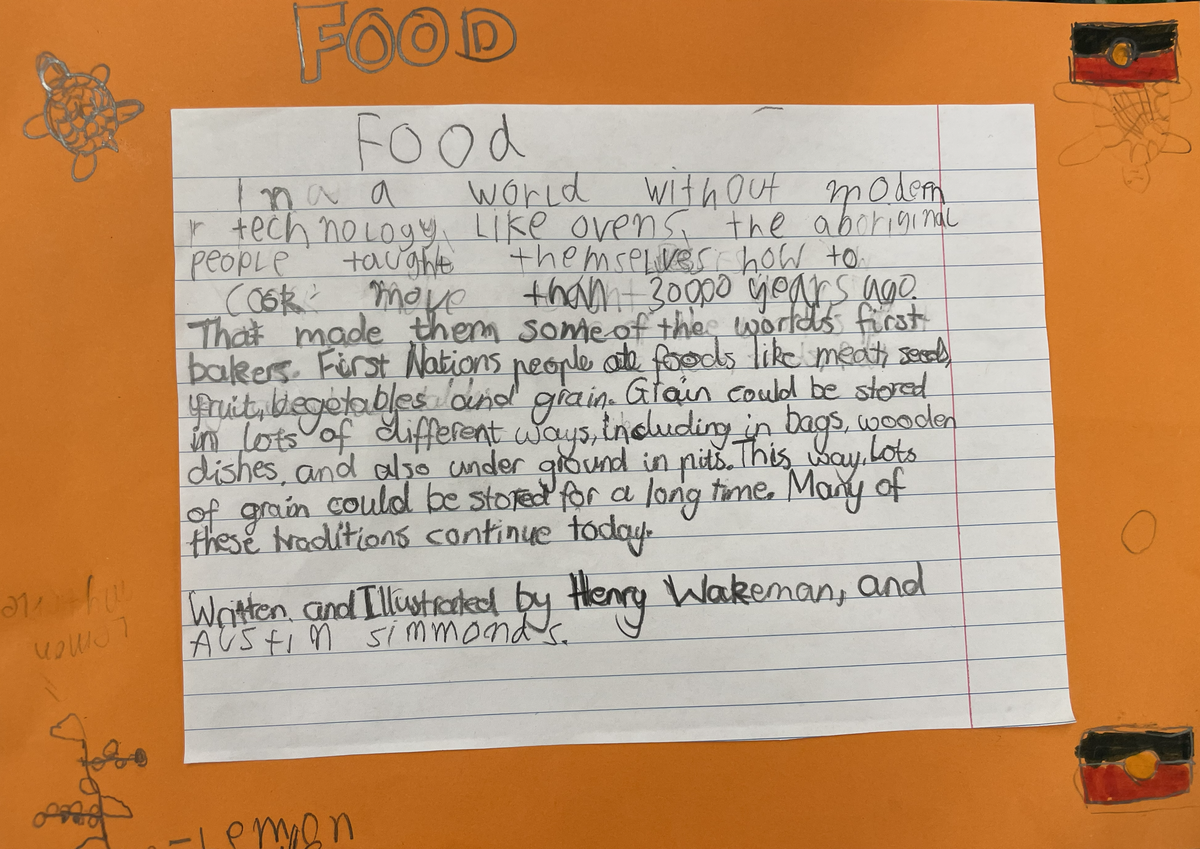 FOOD
Food
In a a world without modern
technology, like ovens, the aboriginal
people taught themselves how to
cook more than 30000 years ago.
That made them some of the worlds first
bakers. First Nations people ate foods like meat, seeds,
fruit, begetables and grain. Grain could be stored
in lots of different ways, including in bags, wooden
dishes, and also under ground in pits. This way, Lots
of grain could be stored for a long time. Many of
these traditions continue today.
Written and Illustrated by Henry Wakeman, and
AUStin simmonds.
-Lemon